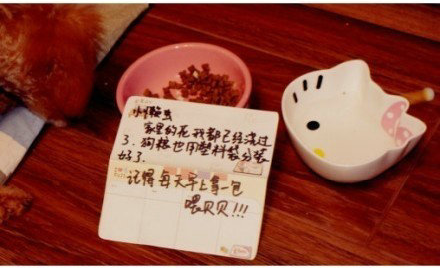 小懒虫
家里的花我都已经浇过
了.狗粮也用塑料袋分装
好了.
记得每天早上拿一包
喂贝贝!!!